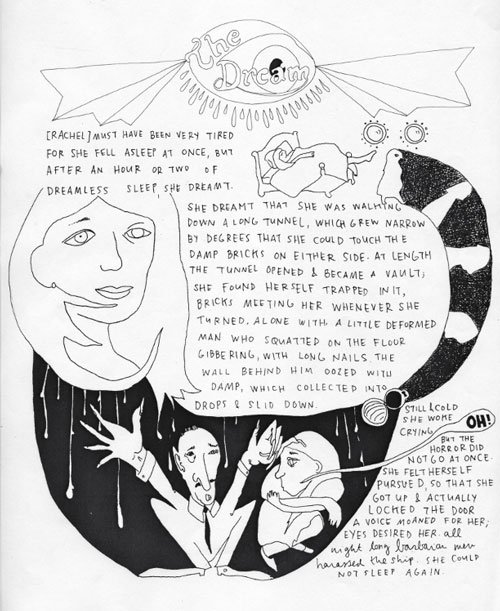 the
Dream
[RACHEL] MUST HAVE BEEN VERY TIRED
FOR SHE FELL ASLEEP AT ONCE, BUT
AFTER AN HOUR OR TWO OF
DREAMLESS SLEEP, SHE DREAMT.
SHE DREAMT THAT SHE WAS WALKING
DOWN A LONG TUNNEL, WHICH GREW NARROW
BY DEGREES THAT SHE COULD TOUCH THE
DAMP BRICKS ON EITHER SIDE. AT LENGTH
THE TUNNEL OPENED & BECAME A VAULT;
SHE FOUND HERSELF TRAPPED IN IT,
BRICKS MEETING HER WHENEVER SHE
TURNED, ALONE WITH A LITTLE DEFORMED
MAN WHO SQUATTED ON THE FLOOR
GIBBERING, WITH LONG NAILS. THE
WALL BEHIND HIM OOZED WITH
DAMP, WHICH COLLECTED INTO
DROPS & SLID DOWN.
STILL & COLD
SHE WOKE
CRYING
OH!
BUT THE
HORROR DID
NOT GO AT ONCE.
SHE FELT HERSELF
PURSUED, SO THAT SHE
GOT UP & ACTUALLY
LOCKED THE DOOR
A VOICE MOANED FOR HER;
EYES DESIRED HER. all
night long barbarian men
harassed the ship. SHE COULD
NOT SLEEP AGAIN.